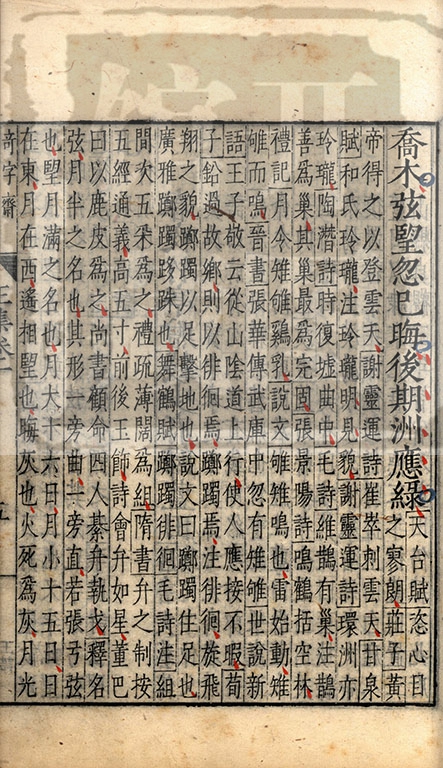 喬木弦朢忽已晦後期洲應綠
天台賦恣心目
之寥朗莊子黃
帝得之以登雲天謝靈運詩崔崒刺雲天甘泉
賦和氏玲瓏注玲瓏明見貌謝靈運詩環洲亦
玲瓏陶潛詩時復墟曲中毛詩維鵲有巢注鵲
善爲巢其巢最爲完固張景陽詩鳴鶴括空林
禮記月令雉雊鷄乳說文雊雉鳴也雷始動雉
雊而鳴晉書張華傳武庫中忽有雉雊世說新
語王子敬云從山陰道上行使人應接不暇荀
子鉛過故鄉則以徘徊焉躑躅焉注徘徊旋飛
翔之貌躑躅以足擊地也說文曰躑躅住足也
廣雅躑躅跢跦也舞鶴賦躑躅徘徊毛詩注組
間次五采爲之禮疏薄闊爲組隋書弁之制按
五經通義高五寸前後玉飾詩會弁如星董巴
曰以鹿皮爲之尚書顧命四人綦弁執戈釋名
弦月半之名也其形一旁曲一旁直若張弓弦
也朢月滿之名也月大十六日月小十五日日
在東月在西遙相朢也晦灰也火死爲灰月光
奇字齋
五